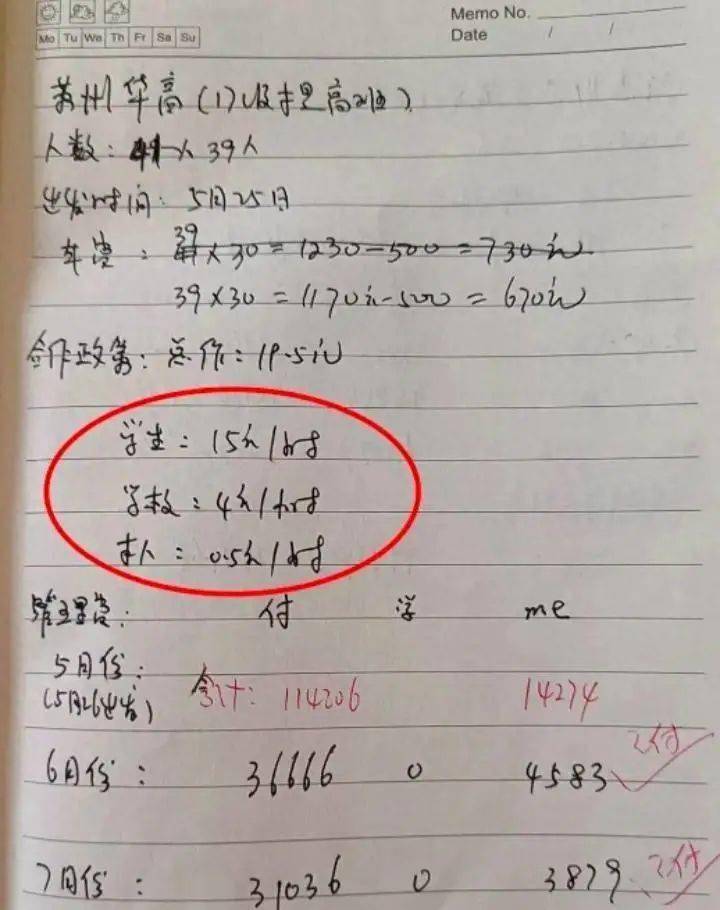 Memo No.
Mo Tu We Th Fr Sa Su
Date / /
苏州华高(1)级管理高班)
人数: 41人 39人
出发时间: 5月25日
39
车费: 41×30=1230-500=730元
39×30=1170元-500=670元
合作政策: 总价: 19.5元
学生: 15元/时
学校: 4元/时
本人: 0.5元/时
管理费: 付 学 me
5月份:
(5月26出发) 合计: 114206 14274
6月份: 36666 0 4583 已付
7月份: 31036 0 3879 已付